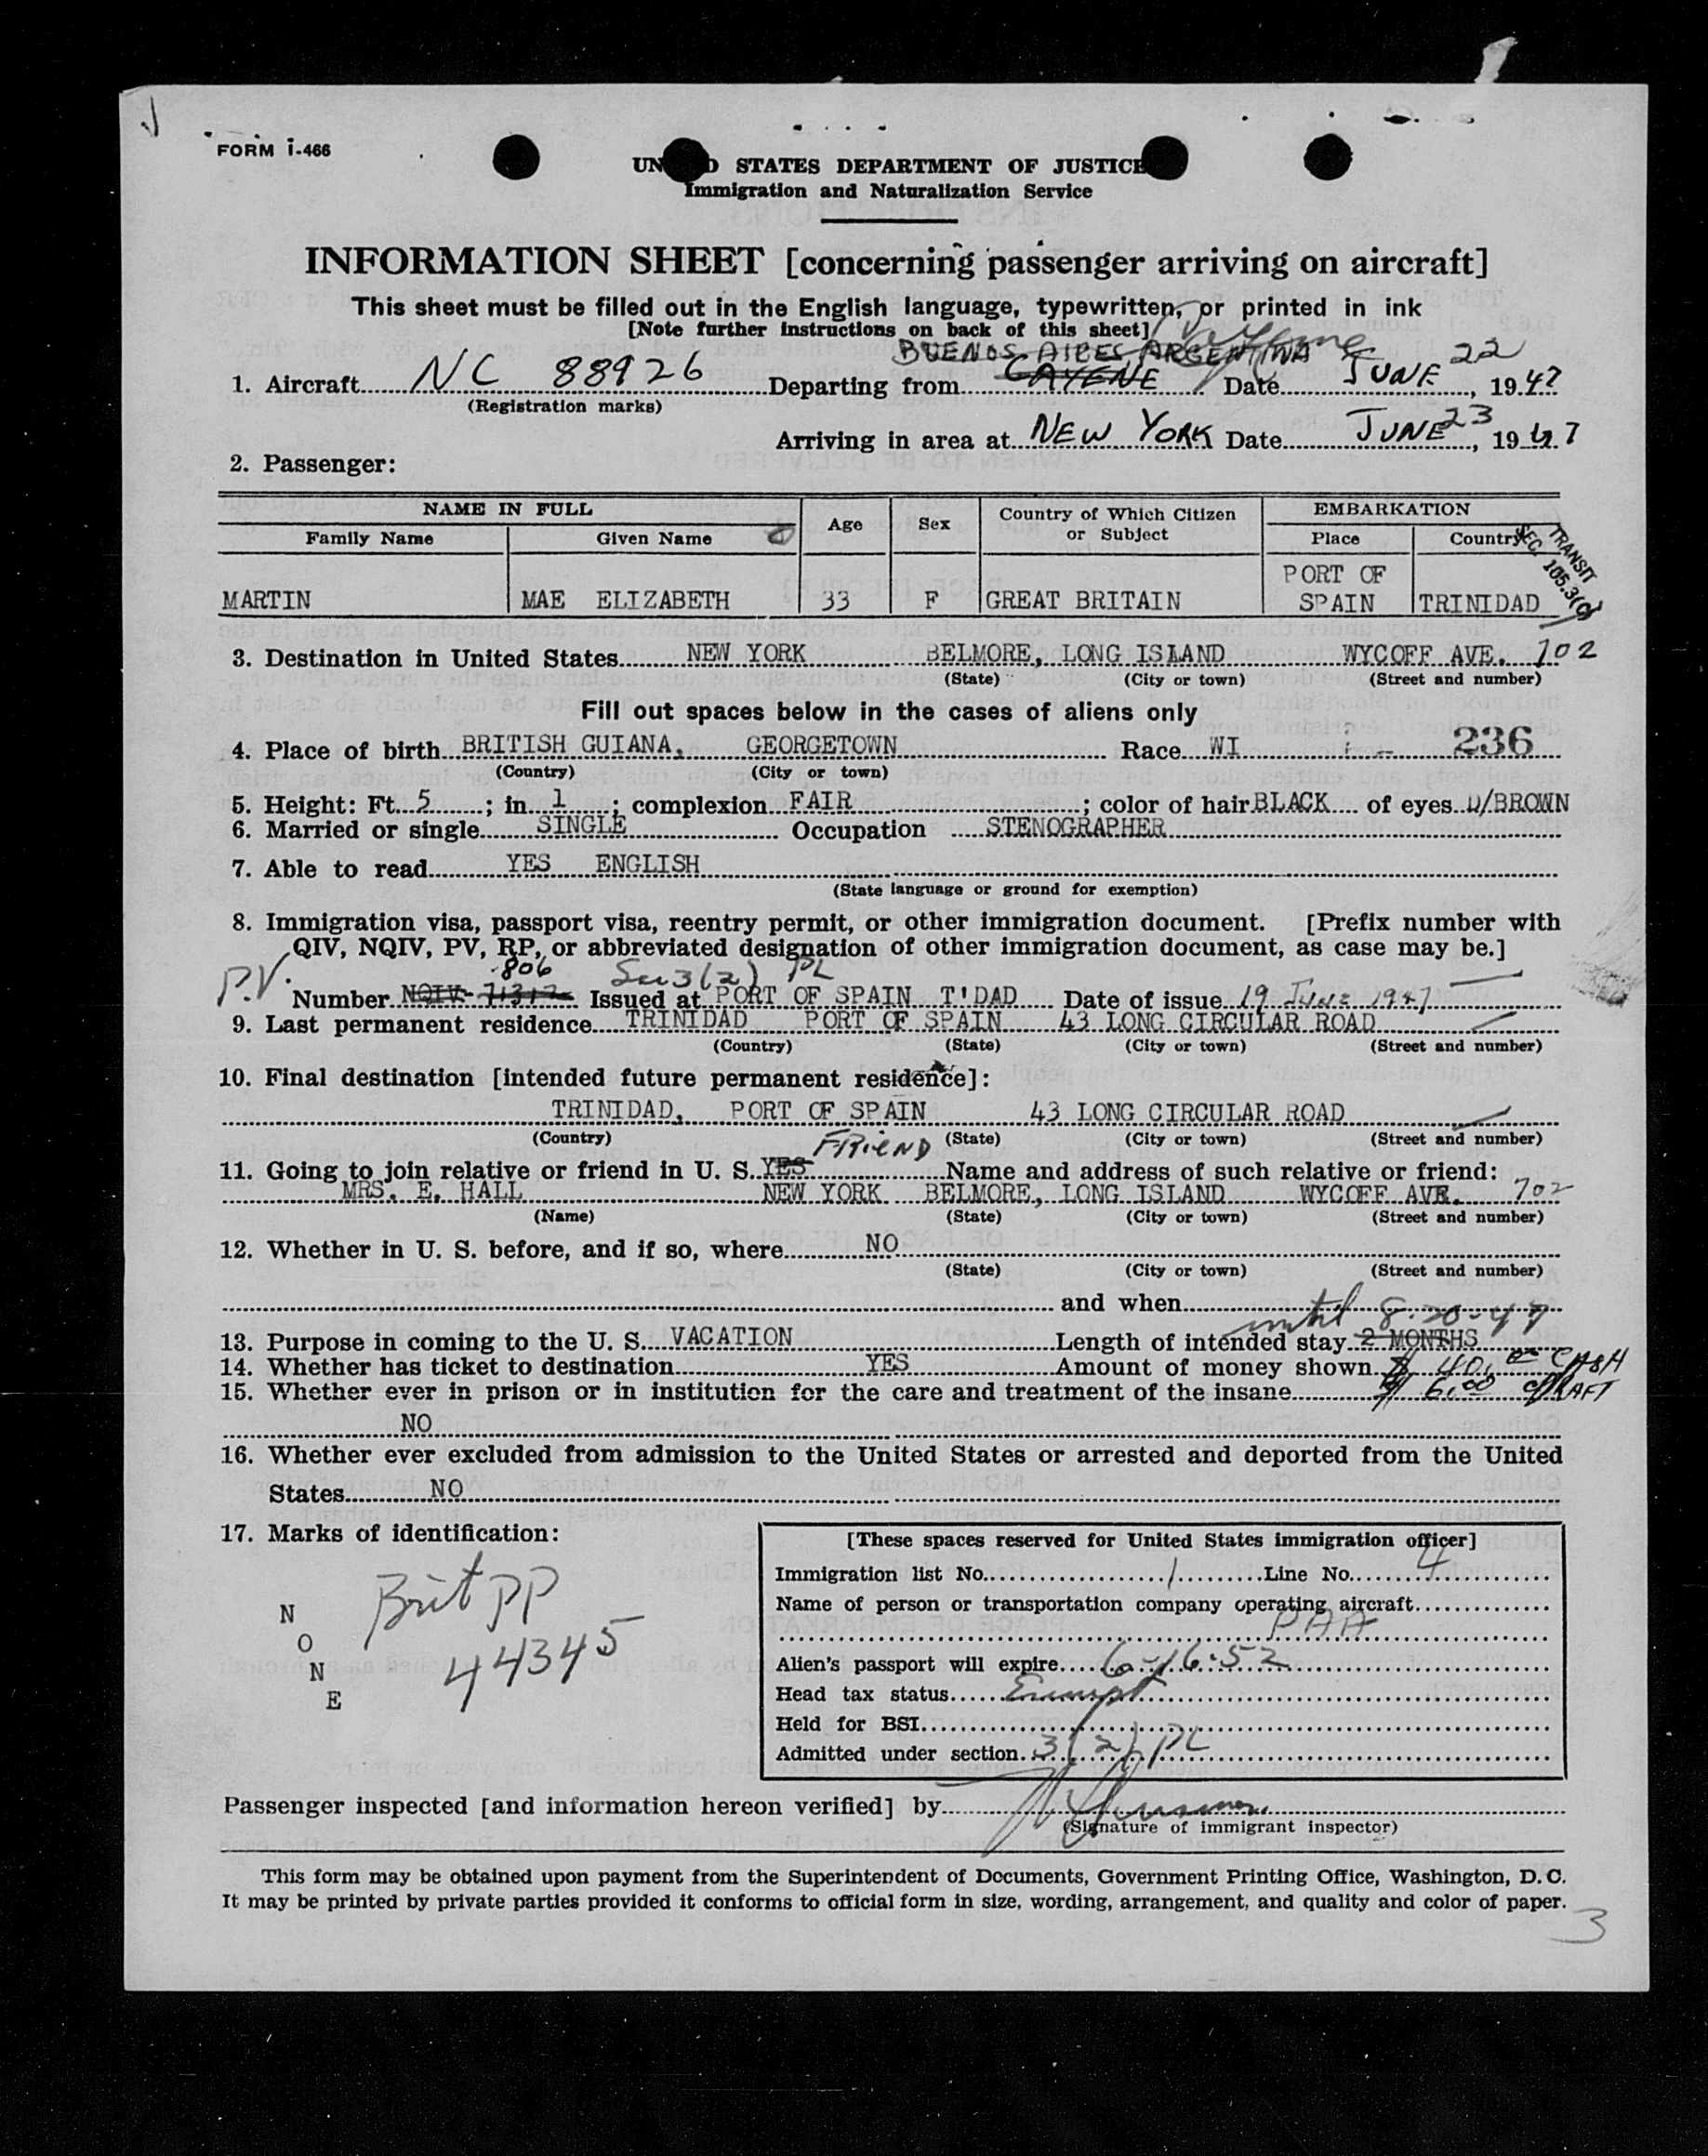 FORM I-466
UN D STATES DEPARTMENT OF JUSTICE
Immigration and Naturalization Service
INFORMATION SHEET [concerning passenger arriving on aircraft]
This sheet must be filled out in the English language, typewritten, or printed in ink
[Note further instructions on back of this sheet]
BUENOS AIRES, ARGENTINA
1. Aircraft NC 88926 Departing from CAYENE Date JUNE 22, 1947
(Registration marks)
Arriving in area at NEW YORK Date JUNE 23, 1947
2. Passenger:
NAME IN FULL Age Sex Country of Which Citizen or Subject EMBARKATION
Family Name Given Name Place Country
TRANSIT
SEC 105.3(c)
MARTIN MAE ELIZABETH 33 F GREAT BRITAIN PORT OF SPAIN TRINIDAD
3. Destination in United States NEW YORK BELMORE, LONG ISLAND WYCOFF AVE. 702
(State) (City or town) (Street and number)
Fill out spaces below in the cases of aliens only
4. Place of birth BRITISH GUIANA, GEORGETOWN Race WI 236
(Country) (City or town)
5. Height: Ft. 5; in. 1; complexion FAIR; color of hair BLACK of eyes D/BROWN
6. Married or single SINGLE Occupation STENOGRAPHER
7. Able to read YES ENGLISH
(State language or ground for exemption)
8. Immigration visa, passport visa, reentry permit, or other immigration document. [Prefix number with
QIV, NQIV, PV, RP, or abbreviated designation of other immigration document, as case may be.]
P.V. 806 Sec 3(2) PL
Number NQIV- 71312 Issued at PORT OF SPAIN T'DAD Date of issue 19 JUNE 1947
9. Last permanent residence TRINIDAD PORT OF SPAIN 43 LONG CIRCULAR ROAD
(Country) (State) (City or town) (Street and number)
10. Final destination [intended future permanent residence]:
TRINIDAD, PORT OF SPAIN 43 LONG CIRCULAR ROAD
(Country) (State) (City or town) (Street and number)
FRIEND
11. Going to join relative or friend in U. S. YES Name and address of such relative or friend:
MRS. E. HALL NEW YORK BELMORE, LONG ISLAND WYCOFF AVE. 702
(Name) (State) (City or town) (Street and number)
12. Whether in U. S. before, and if so, where NO
(State) (City or town) (Street and number)
and when
until 8-20-47
13. Purpose in coming to the U. S. VACATION Length of intended stay 2 MONTHS
14. Whether has ticket to destination YES Amount of money shown $ 40.00 CASH
15. Whether ever in prison or in institution for the care and treatment of the insane $ 6.00 DRAFT
NO
16. Whether ever excluded from admission to the United States or arrested and deported from the United
States NO
17. Marks of identification:
NONE
Brit PP
44345
[These spaces reserved for United States immigration officer]
Immigration list No. 1 Line No. 4
Name of person or transportation company operating aircraft
PAA
Alien's passport will expire 6-16-52
Head tax status Exempt
Held for BSI
Admitted under section 3(2) PL
Passenger inspected [and information hereon verified] by
(Signature of immigrant inspector)
This form may be obtained upon payment from the Superintendent of Documents, Government Printing Office, Washington, D. C.
It may be printed by private parties provided it conforms to official form in size, wording, arrangement, and quality and color of paper.
3